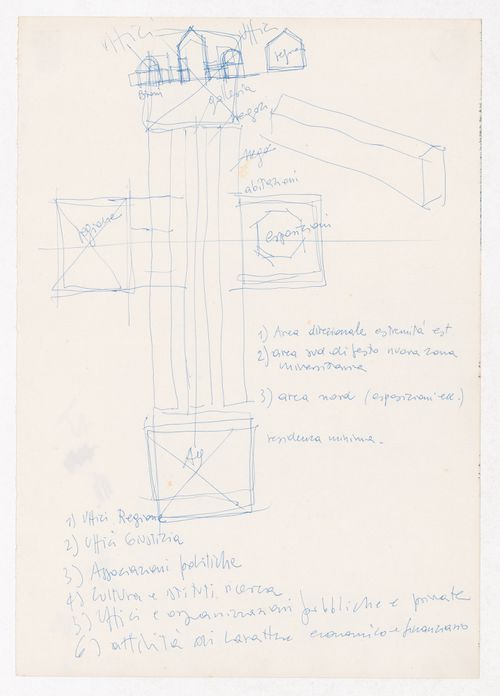 uffici
uffici
regione
galleria
negozi
abitazioni
regione
esposizioni
1) Area direzionale estremità est
2) area sud di festo nuova zona
universitaria
3) area nord (esposizioni ecc.)
residenza minima.
1) Uffici Regione
2) Uffici Giustizia
3) Associazioni politiche
4) Cultura e istituti ricerca
5) Uffici e organizzazioni pubbliche e private
6) attività di carattere economico e finanziario